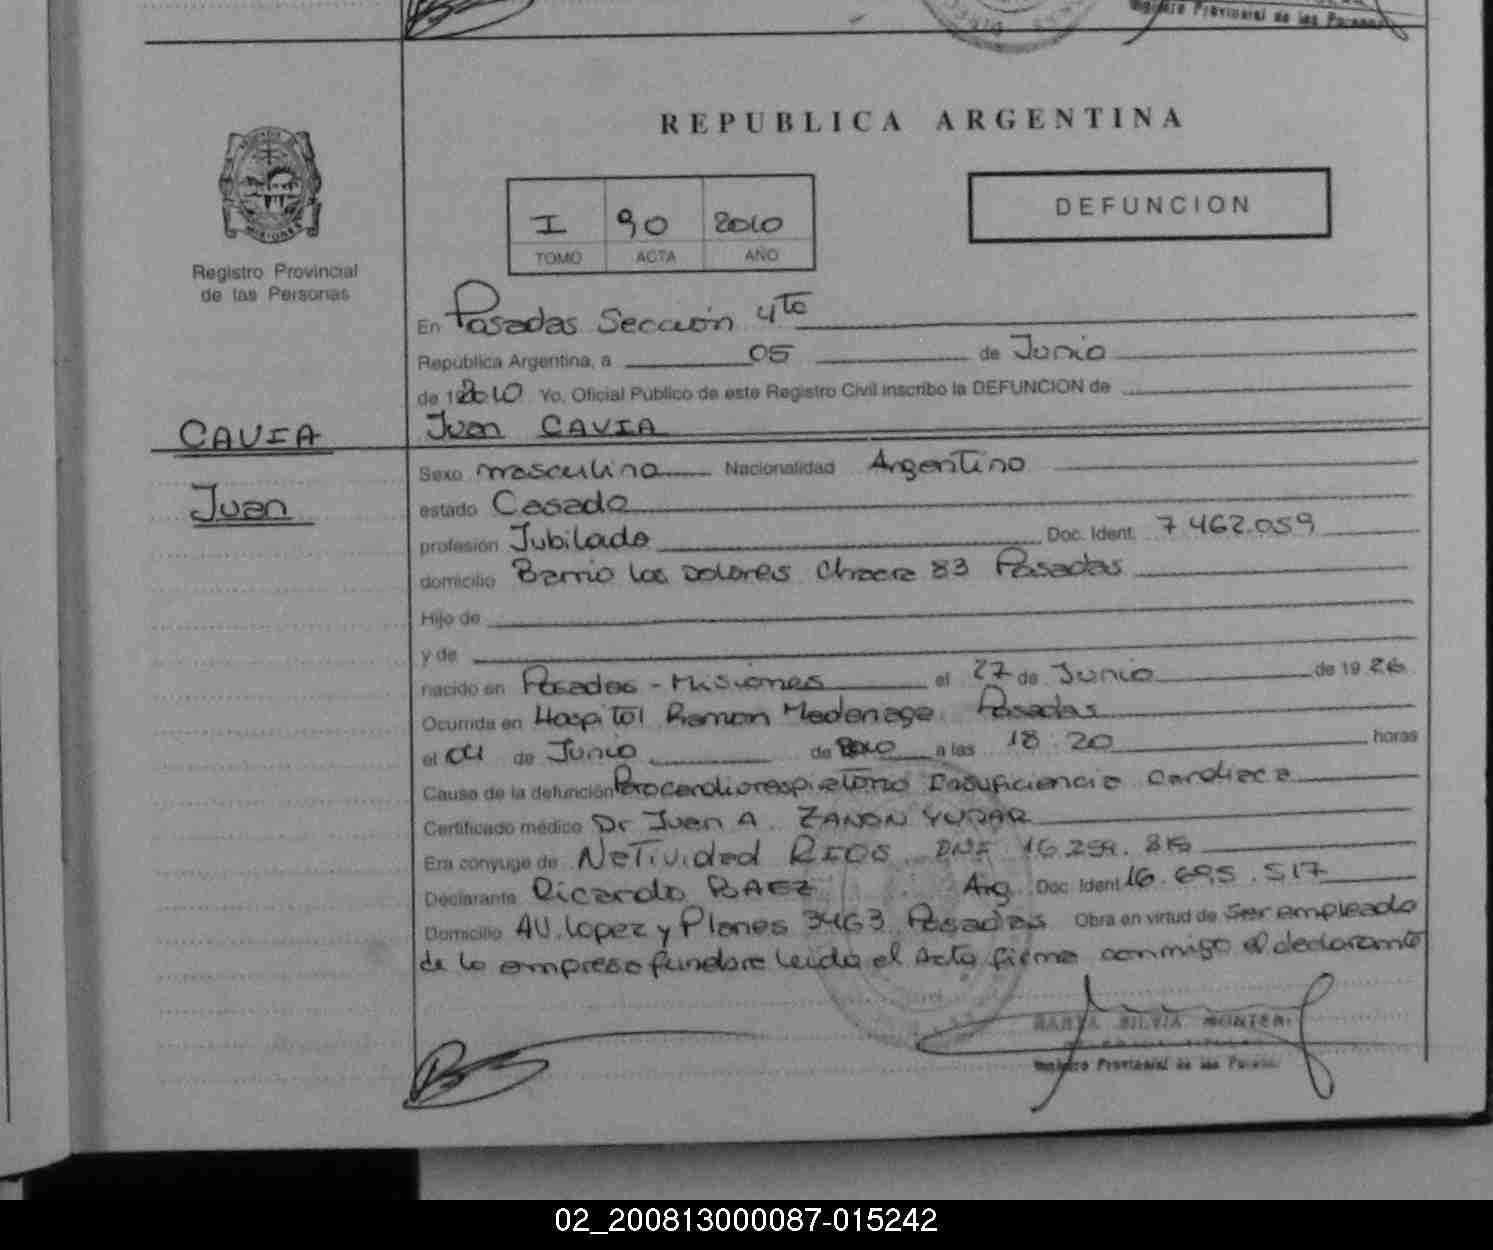 Registro Provincial de las Personas
REPUBLICA ARGENTINA
MISIONES
Registro Provincial
de las Personas
I 90 2010
TOMO ACTA AÑO
DEFUNCION
En Posadas Sección 4ta
República Argentina, a 05 de Junio
de 2010 Yo, Oficial Público de este Registro Civil inscribo la DEFUNCION de
Juan CAVIA
CAVIA
Juan
Sexo masculino Nacionalidad Argentino
estado Casado
profesión Jubilado Doc. Ident. 7.462.059
domicilio Barrio los Dolores Chacra 83 Posadas
Hijo de
y de
nacido en Posadas - Misiones el 27 de Junio de 1926
Ocurrida en Hospital Ramon Madariaga Posadas
el 04 de Junio de 2010 a las 18:20 horas
Causa de la defunción Paro cardiorespiratorio Insuficiencia Cardiaca
Certificado médico Dr Juan A. ZANON
Era conyuge de Natividad RIOS DNI
Declarante Ricardo BAEZ Arg. Doc. Ident. 16.695.517
Domicilio AV. Lopez y Planes 3463 Posadas Obra en virtud de ser empleado
de la empresa leida el Acta firma conmigo el declarante
SILVIA
Registro Provincial de las
02_200813000087-015242